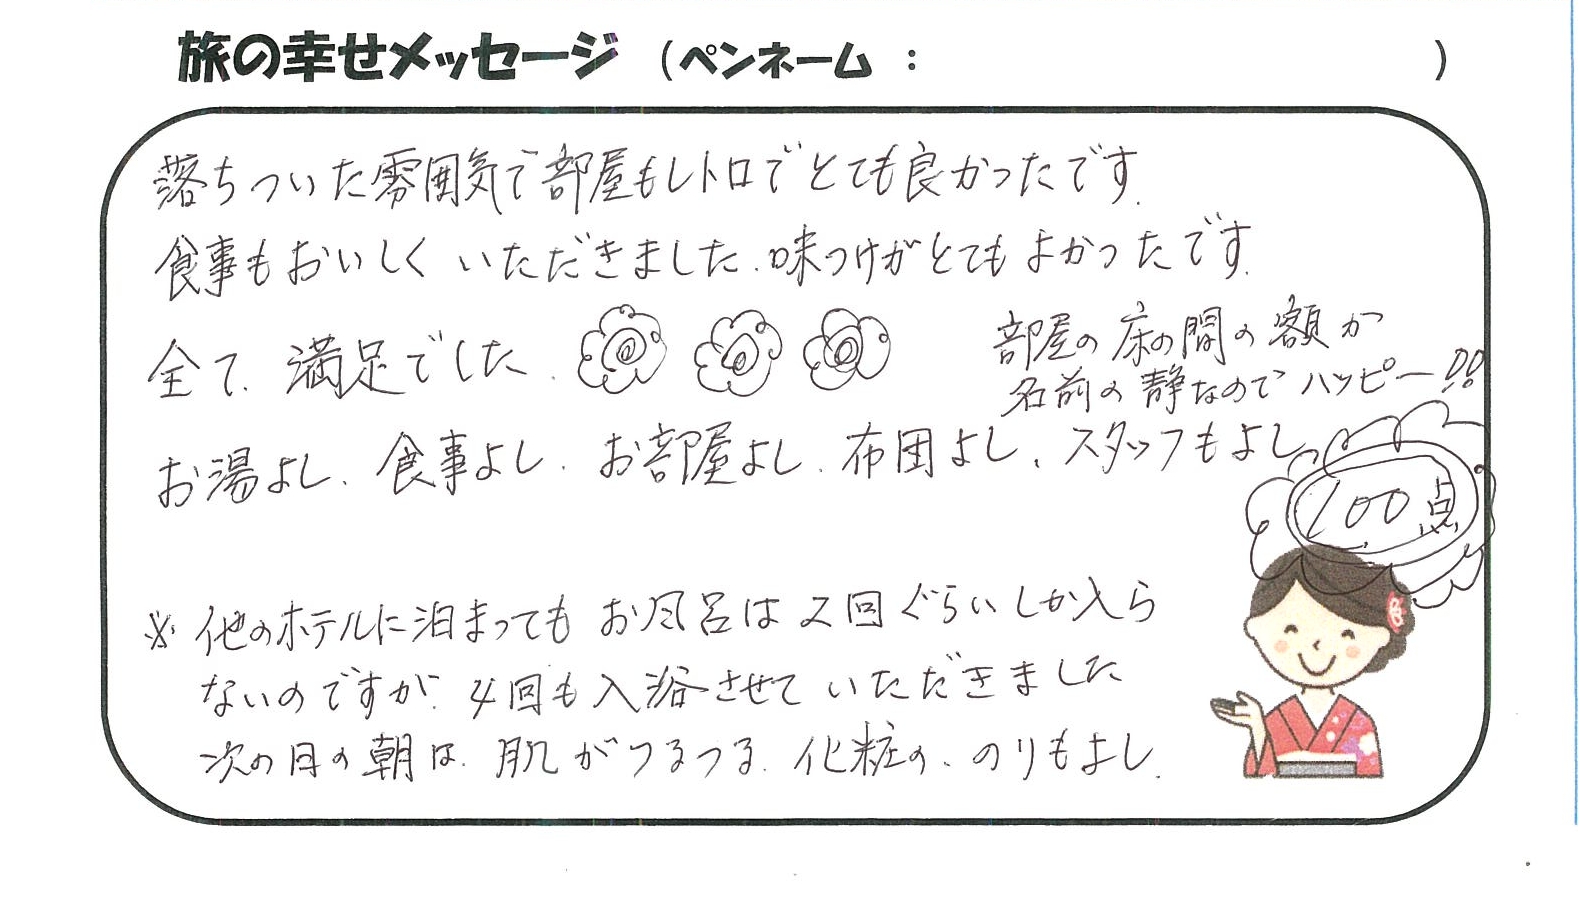 旅の幸せメッセージ （ペンネーム ： ）
落ちついた雰囲気で部屋もレトロでとても良かったです.
食事もおいしく いただきました.味つけがとてもよかったです.
全て、満足でした.
部屋の床の間の額が
名前の静なのでハッピー!!
お湯よし、食事よし、お部屋よし、布団よし、スタッフもよし、
100点
※ 他のホテルに泊まってもお風呂は2回ぐらいしか入ら
ないのですが、4回も入浴させていただきました
次の日の朝は、肌がつるつる、化粧の、のりもよし.